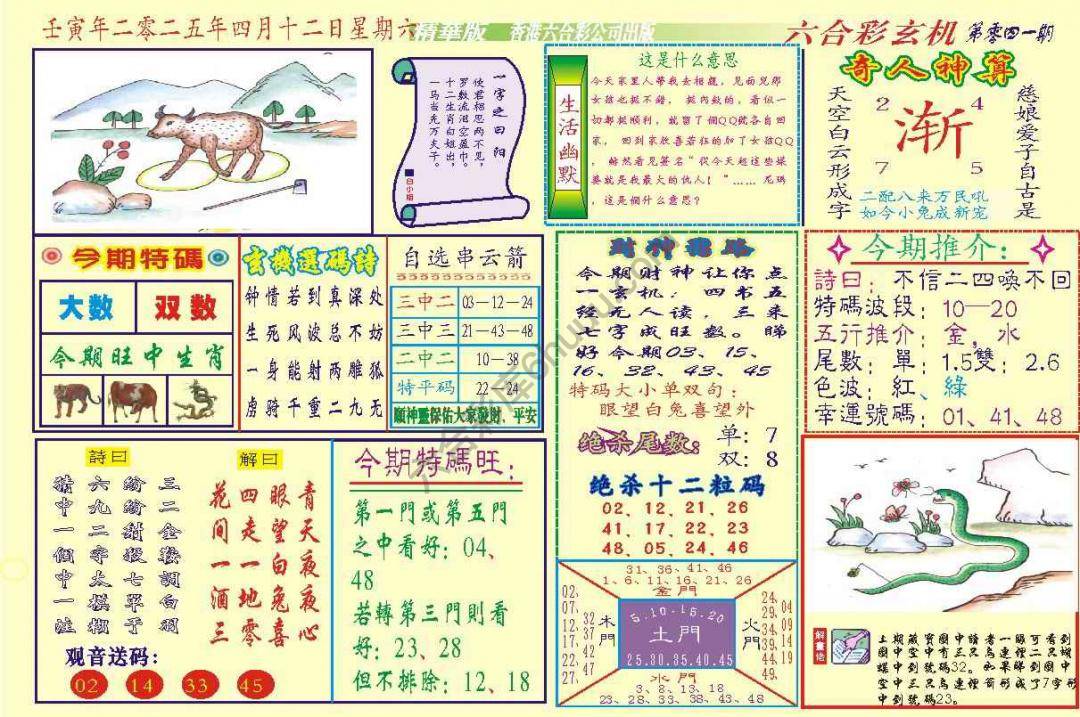 壬寅年二零二五年四月十二日星期六
精華版 香港六合彩公司出版
六合彩玄机 第零四一期
一字之曰阳
使君相思两不见，
罗数流泪空盈巾。
十二生肖白姐出，
一马当先万夫子。
白小姐
生活幽默
这是什么意思
今天家里人带我去相亲，见面见那
女孩也挺不错，挺内敛的，看似一
切都挺顺利，就留了個QQ號各自回
家，回到家欣喜若狂的加了女孩QQ
，赫然看见签名“從今天起这些媒
婆就是我最大的仇人！”……尼玛
，这是個什么意思？
奇人神算
天空白云形成字
慈娘爱子自古是
2 4
渐
7 5
二配八来万民吼
如今小兔成新宠
今期特碼
大数 双数
今期旺中生肖
玄機選碼詩
钟情若到真深处
生死风波总不妨
一身能射两雕狐
虏骑千重二九无
自选串云箭
三中二 03—12—24
三中三 21—43—48
二中二 10—38
特平码 22—24
顺神靈保佑大家發財、平安
財神碼路
今期财神让你点
一玄机：四书五
经无人读，三来
七字成旺数。睇
好今期03、15、
16、32、43、45
特码大小单双句：
眼望白兔喜望外
绝杀尾数： 单：7
双：8
绝杀十二粒码
02、12、21、26
41、17、22、23
48、05、24、46
今期推介：
詩曰：不信二四唤不回
特碼波段：10—20
五行推介：金，水
尾數：單：1.5雙：2.6
色波：紅、綠
幸運號碼：01、41、48
詩曰
三二金鞍調白羽
纷纷紂投七單于
六九二字太模糊
猜中一個中一注
解曰
青天夜夜心
眼望白兔喜
四走一地零
花间一酒三
观音送码：
02 14 33 45
今期特碼旺：
第一門或第五門
之中看好：04、
48
若轉第三門則看
好：23、28
但不排除：12、18
31、36、41、46
1、6、11、16、21、26
金門
02、07、12、17、22、27
32、37、42、47
木門
5.10-15.20
土門
25.30.35.40.45
火門
24、29、34、39、44、49
04、09、14、19
水門
3、8、13、18
23、28、33、38、43、48
解畫佬
上期藏寶圖中讀者一眼可看到
圖中空中有三只鸟連裡二只蝴
蝶中到號碼32。如果睇到圖中
空中三只鸟連裡箭形成了7字形
中到號碼23。